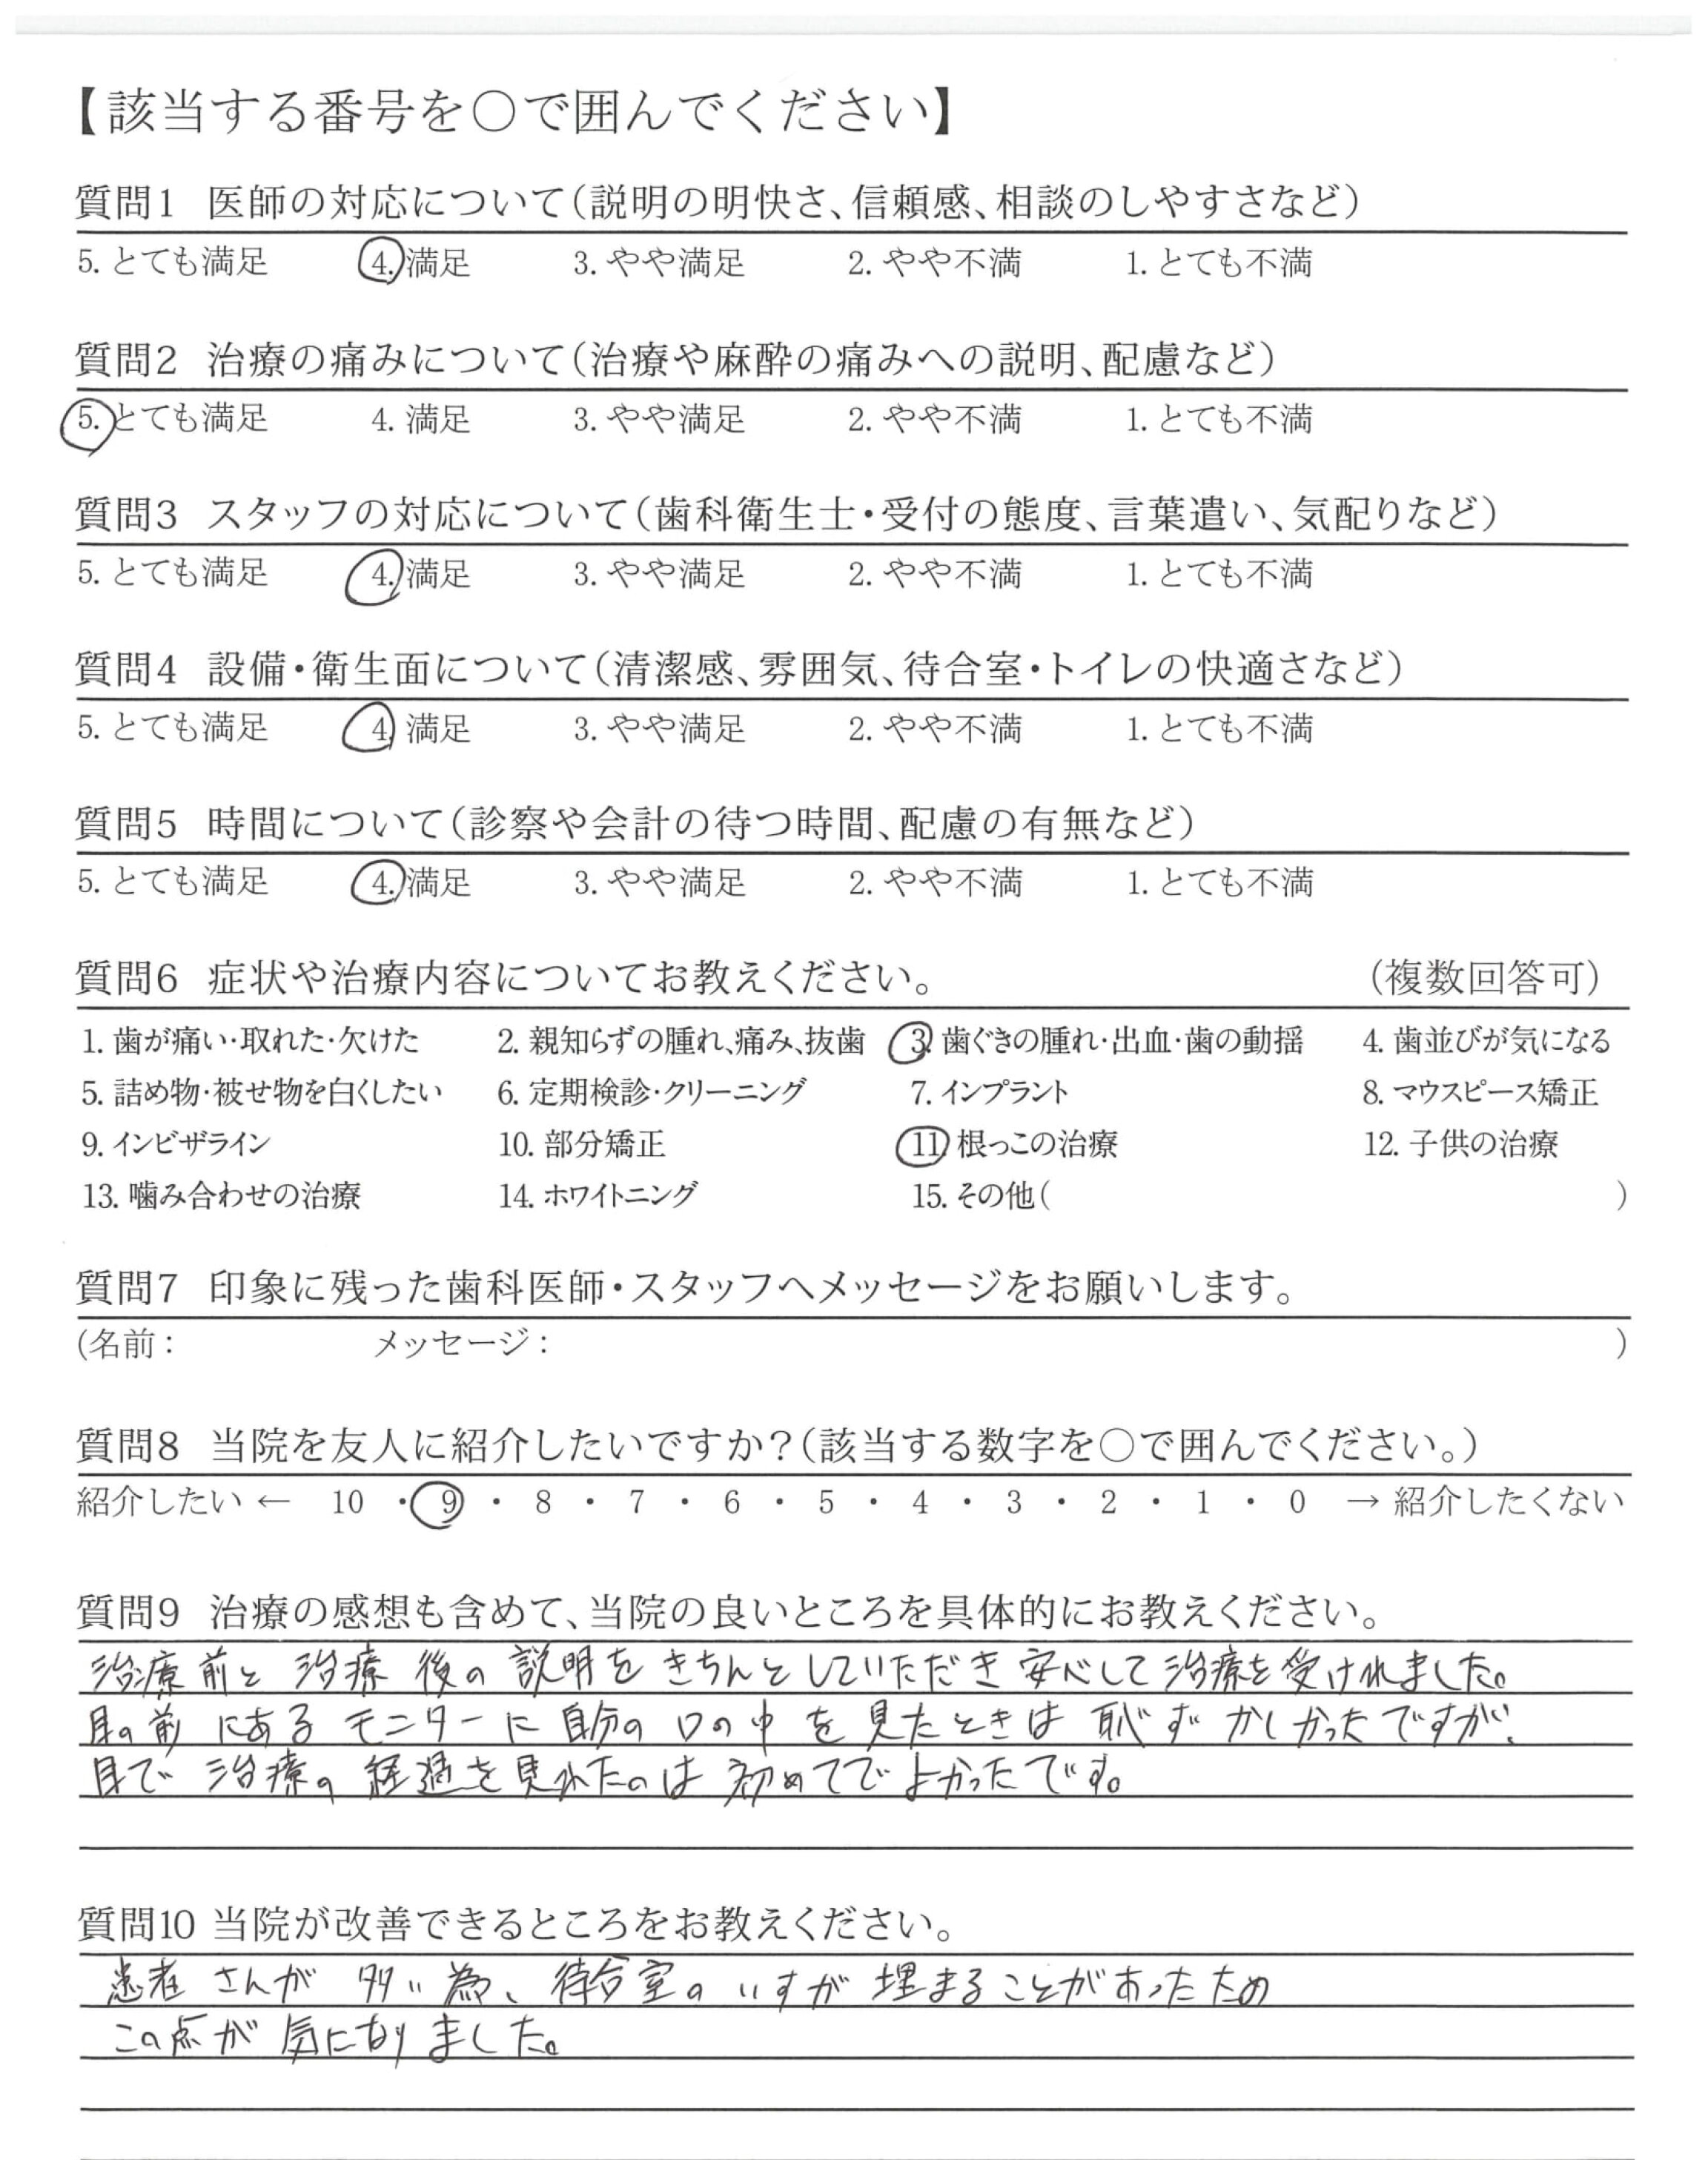 【該当する番号を○で囲んでください】
質問1 医師の対応について(説明の明快さ、信頼感、相談のしやすさなど)
5. とても満足 4. 満足 3. やや満足 2. やや不満 1. とても不満
質問2 治療の痛みについて(治療や麻酔の痛みへの説明、配慮など)
5. とても満足 4. 満足 3. やや満足 2. やや不満 1. とても不満
質問3 スタッフの対応について(歯科衛生士・受付の態度、言葉遣い、気配りなど)
5. とても満足 4. 満足 3. やや満足 2. やや不満 1. とても不満
質問4 設備・衛生面について(清潔感、雰囲気、待合室・トイレの快適さなど)
5. とても満足 4. 満足 3. やや満足 2. やや不満 1. とても不満
質問5 時間について(診察や会計の待つ時間、配慮の有無など)
5. とても満足 4. 満足 3. やや満足 2. やや不満 1. とても不満
質問6 症状や治療内容についてお教えください。 (複数回答可)
1. 歯が痛い・取れた・欠けた 2. 親知らずの腫れ、痛み、抜歯 3. 歯ぐきの腫れ・出血・歯の動揺 4. 歯並びが気になる
5. 詰め物・被せ物を白くしたい 6. 定期検診・クリーニング 7. インプラント 8. マウスピース矯正
9. インビザライン 10. 部分矯正 11. 根っこの治療 12. 子供の治療
13. 噛み合わせの治療 14. ホワイトニング 15. その他( )
質問7 印象に残った歯科医師・スタッフへメッセージをお願いします。
(名前: メッセージ: )
質問8 当院を友人に紹介したいですか?(該当する数字を○で囲んでください。)
紹介したい ← 10 ・ 9 ・ 8 ・ 7 ・ 6 ・ 5 ・ 4 ・ 3 ・ 2 ・ 1 ・ 0 → 紹介したくない
質問9 治療の感想も含めて、当院の良いところを具体的にお教えください。
治療前と治療後の説明をきちんとしていただき安心して治療を受けれました。
目の前にあるモニターに自分の口の中を見たときは恥ずかしかったですが、
目で治療の経過を見れたのは初めてでよかったです。
質問10 当院が改善できるところをお教えください。
患者さんが多い為、待合室のいすが埋まることがあったため
この点が気になりました。